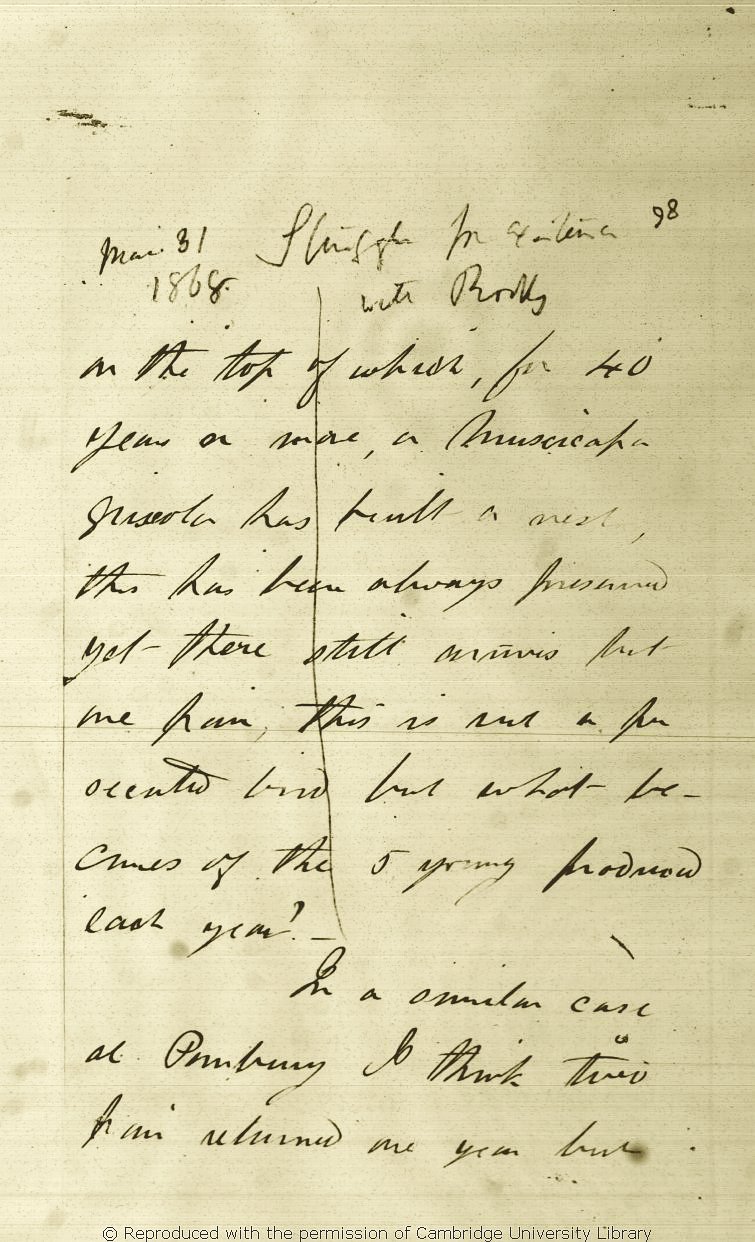 Mar. 31 Struggle for existence 98
1868. with Birds
on the top of which, for 40
years or more, a Muscicapa
grisola has built a nest,
this has been always preserved
yet there still arrives but
one pair, this is not a per
secuted bird but what be-
comes of the 5 young produced
each year? —
In a similar case
at Pembury I think two
pair returned one year but
© Reproduced with the permission of Cambridge University Library